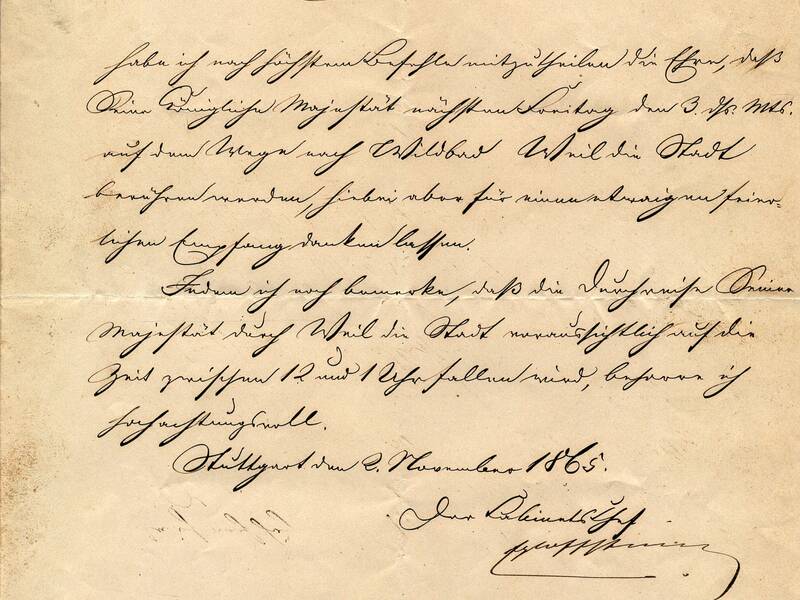 habe ich nach höchstem Befehle mitzutheilen die Ehre, daß
Seine Königliche Majestät nächsten Freitag den 3. ds. Mts.
auf dem Wege nach Wildbad Weil die Stadt
berühren werden, hiebei aber für einen etwaigen feier-
lichen Empfang danken lassen.
Indem ich noch bemerke, daß die Durchreise Seiner
Majestät durch Weil die Stadt voraussichtlich auf die
Zeit zwischen 12 und 1 Uhr fallen wird, beharre ich
hochachtungsvoll.
Stuttgart den 2. November 1865.
Der Cabinetschef